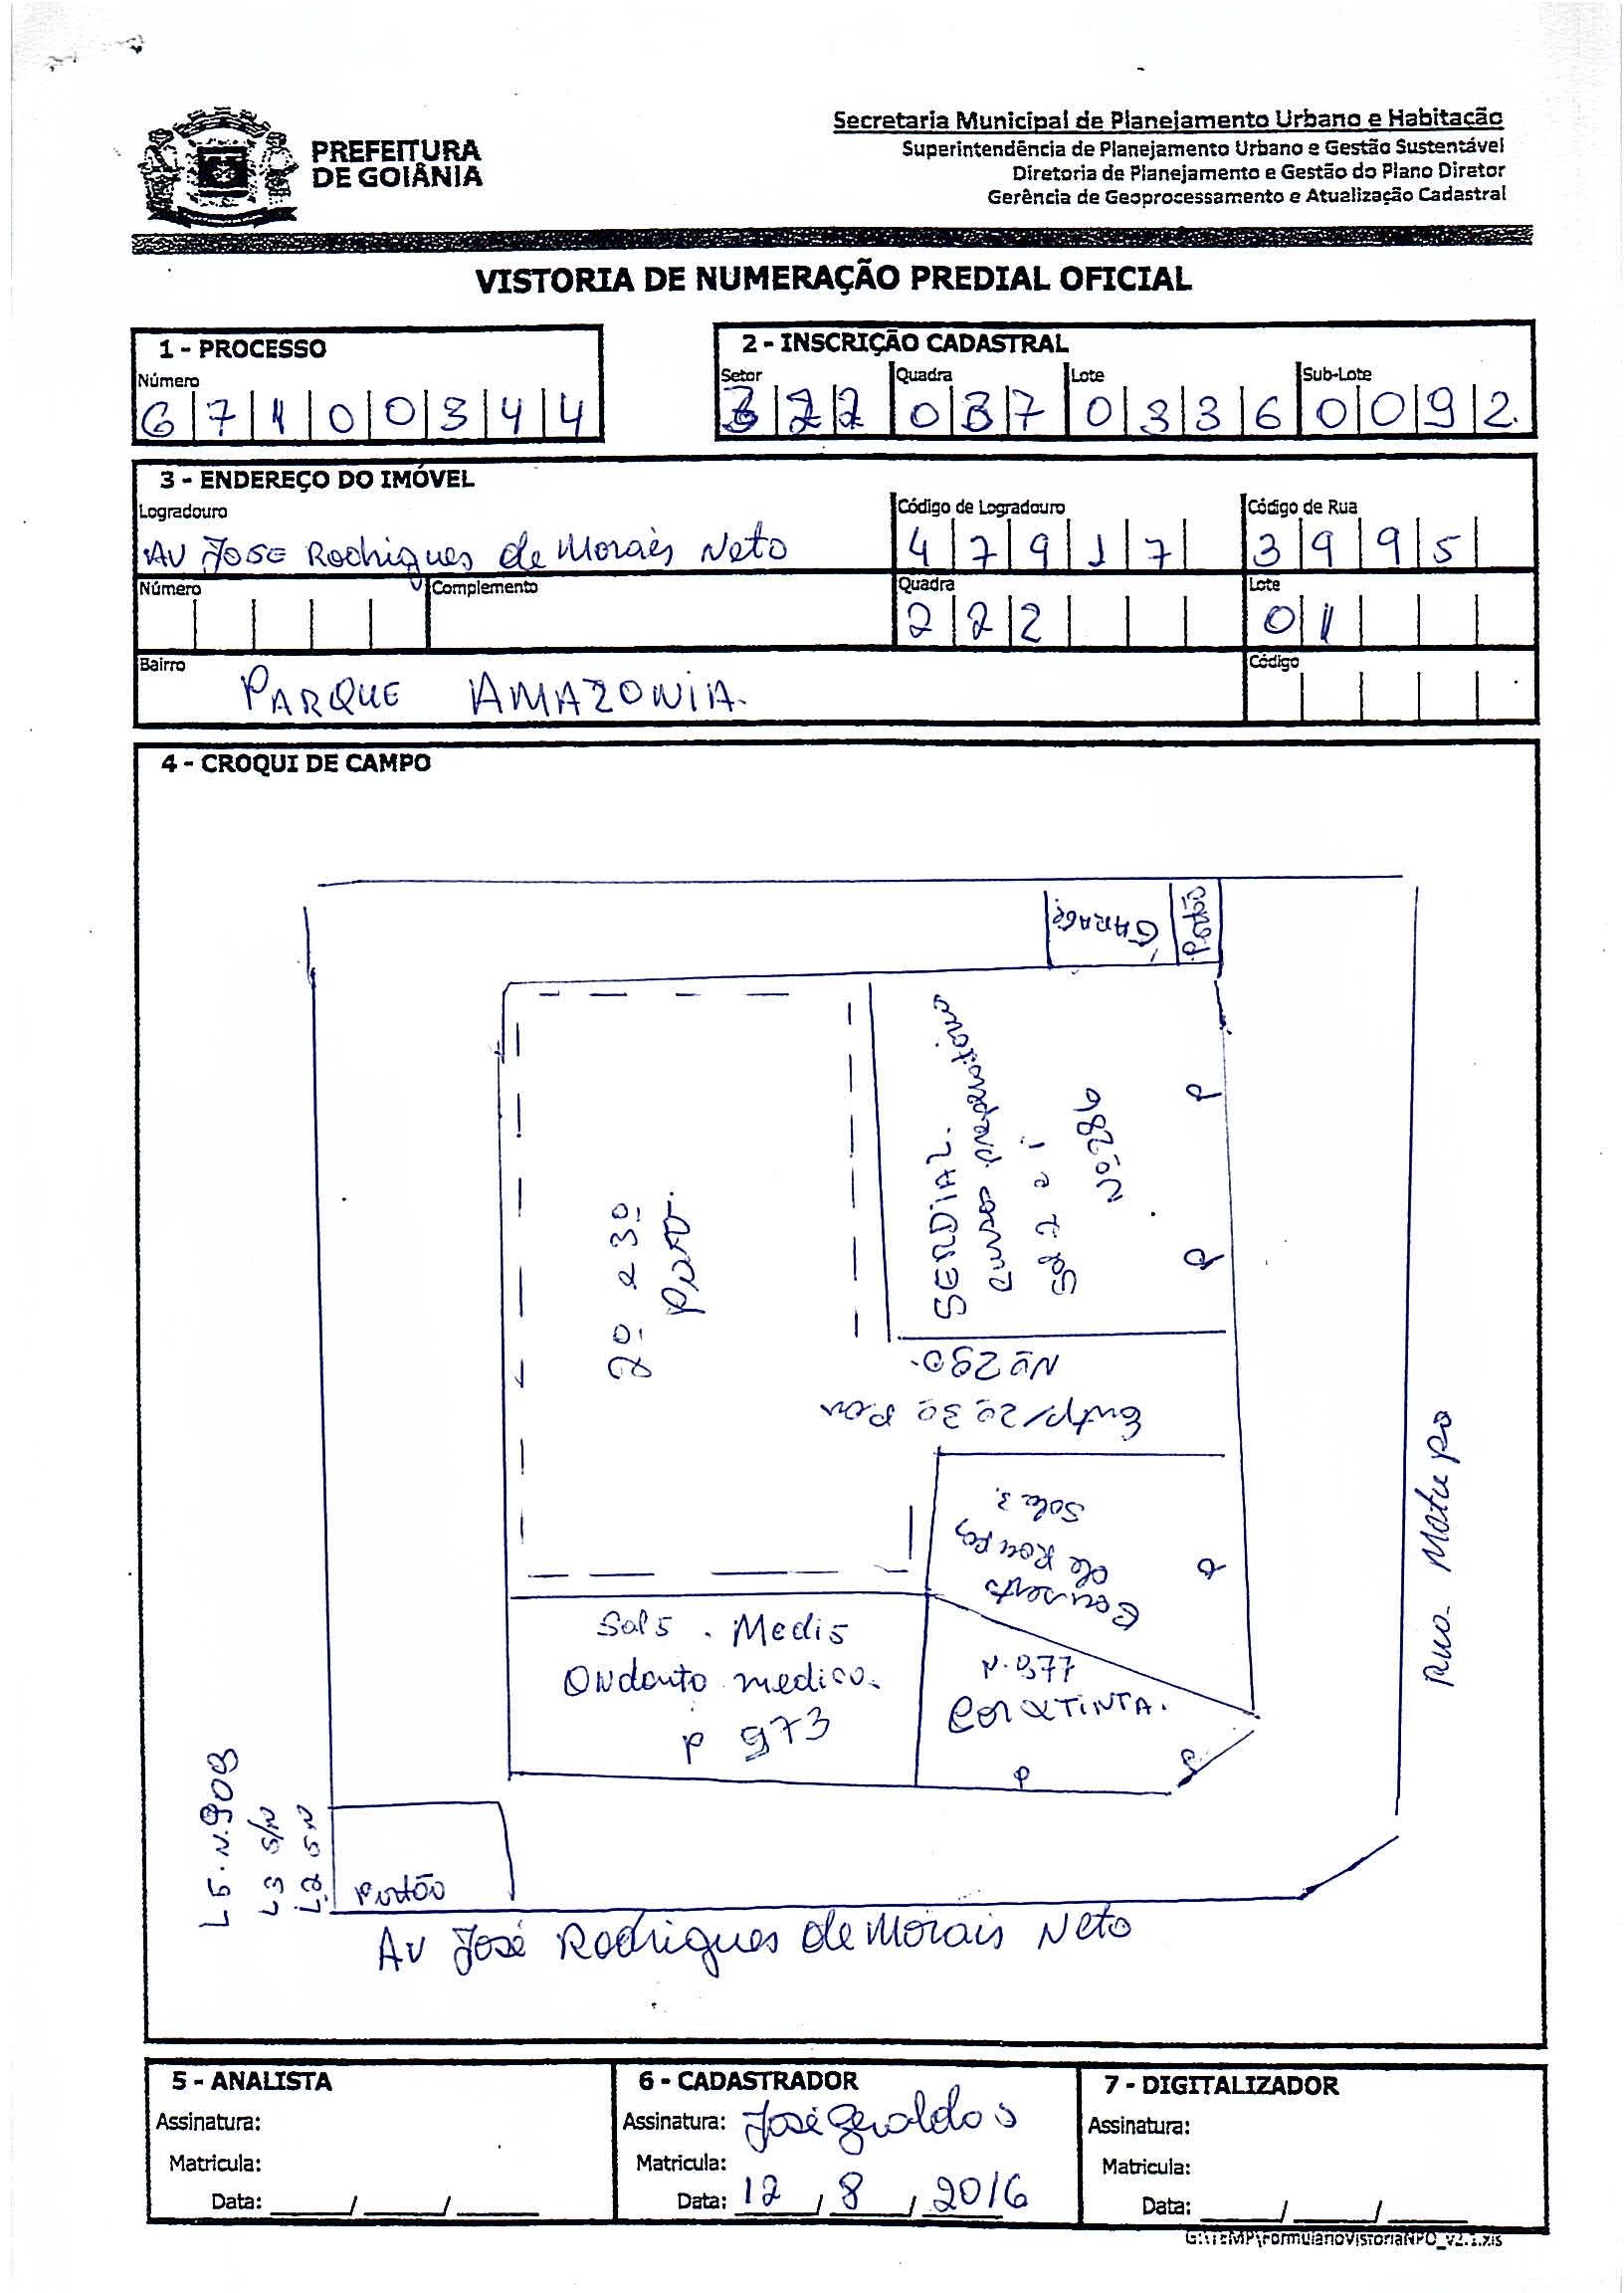 PREFEITURA
DE GOIÂNIA
Secretaria Municipal de Planejamento Urbano e Habitação
Superintendência de Planejamento Urbano e Gestão Sustentável
Diretoria de Planejamento e Gestão do Plano Diretor
Gerência de Geoprocessamento e Atualização Cadastral
VISTORIA DE NUMERAÇÃO PREDIAL OFICIAL
1 - PROCESSO
Número
6 7 1 0 0 3 4 4
2 - INSCRIÇÃO CADASTRAL
Setor Quadra Lote Sub-Lote
322 037 0336 0092
3 - ENDEREÇO DO IMÓVEL
Logradouro Código de Logradouro Código de Rua
AV JOSE Rodrigues de Moraes Neto 4 7 9 1 7 3 9 9 5
Número Complemento Quadra Lote
2 2 2 0 1
Bairro Código
PARQUE AMAZONIA.
4 - CROQUI DE CAMPO
GARAGE
Portão
SERDIAL.
Curso preparatório
Sal 2 e 1
Nº 286
P
P
2º e 3º
Pav.
Nº 290.
Ent p/ 2º 3º Pav
Sala 3.
de Roupas
Conserto
P
Sal 5 . Medis
Ondonto medico.
P 973
N. 977
Cor & TINTA.
P
P
Rua Matupa
L 5 . N. 909
L 3 S/N
L 2 SN
Portão
Av José Rodrigues de Morais Neto
5 - ANALISTA
Assinatura:
Matricula:
Data: ____/____/____
6 - CADASTRADOR
Assinatura: José Geraldo S
Matricula:
Data: 12 / 8 / 2016
7 - DIGITALIZADOR
Assinatura:
Matricula:
Data: ____/____/____
G:\TEMP\FormularioVistoriaNPO_v2.1.xls